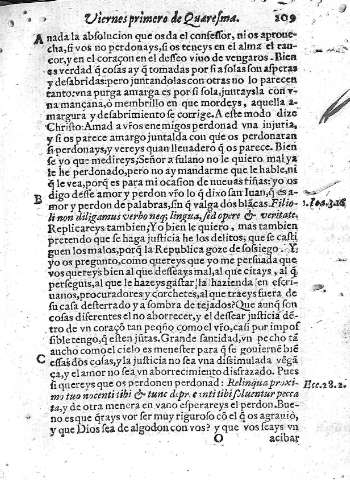 Viernes primero de Quaresma. 109
A nada la absolucion que os da el confessor, ni os aproue-
cha, si vos no perdonays, si os teneys en el alma el ran-
cor, y en el coraçon en el desseo viuo de vengaros. Bien
es verdad q̃ cosas ay q̃ tomadas por si a solas son asperas
y desabridas: pero juntandolas con otras no lo parecen
tanto: vna purga amarga es por si sola, juntaysla con v-
na mançana, ò membrillo en que mordeys, aquella a-
margura y desabrimiento se corrige. A este modo dize
Christo: Amad a v̄ros enemigos perdonad vna injuria,
y si os parece amargo juntalda con que os perdonaran
si perdonays, y vereys quan llenadero q̃ os parece. Bien
se yo que me direys, Señor a fulano no le quiero mal ya
le he perdonado, pero no ay mandarme que le hable, ni
q̃ le vea, porq̃ es para mi ocasion de nueuas riñas: yo os
digo desse amor y perdon v̄ro lo q̃ dixo san Iuan, q̃ es a-
B mor y perdon de palabras, sin q̃ valga dos blãcas. Filio- 1. Ioa. 3. 18
li non diligamus verbo neq; lingua, sed opere & veritate.
Replicareys tambien; Yo bien le quiero, mas tambien
pretendo que se haga justicia de los delitos; que se casti
guen los malos, porq̃ la Republica goze de sossiego. Y
yo os pregunto, como quereys que yo me persuada que
vos quereys bien al que desseays mal, al que citays, al q̃
perseguis, al que le hazeys gastar la hazienda en escri-
uanos, procuradores y corchetes, al que traeys fuera de
su casa desterrado y a sombra de tejados? Que aũn son
cosas diferentes el no aborrecer, y el dessear justicia dẽ-
tro de vn coraçõ tan peqũo como el v̄ro, casi por impos
sible tengo, q̃ esten jũtas. Grande santidad, vn pecho tã
ancho como el cielo es menester para q̃ se gouierne biẽ
C essas dos cosas, y la justicia no sea vna dissimulada vẽgã
ça, y el amor no sea vn aborrecimiento disfrazado. Pues
si quereys que os perdonen perdonad: Relinque proxi- Ecc. 28. 2.
mo tuo nocenti tibi & tunc deprecanti tibi soluentur pecca
ta, y de otra menera en vano esperareys el perdon. Bue-
no es que q̃rays vos ser muy riguroso cõ el q̃ os agrauiò,
y que Dios sea de algodon con vos? y que vos seays vn
O acibar